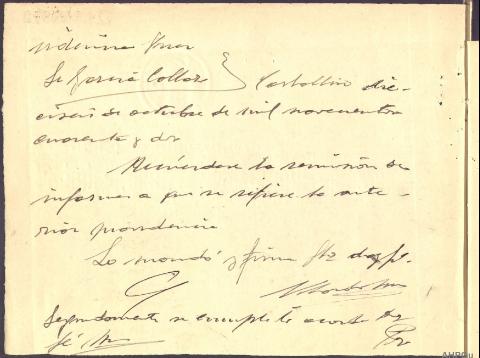 Sr García Collar
Carballino die-
ciseis de octubre de mil novecientos
cuarenta y dos
Recuérdese la remisión de
informes a que se refiere la ante-
rior providencia
Lo mandó y firma Sª doy fe.
Seguidamente se cumple lo acordado doy
fé